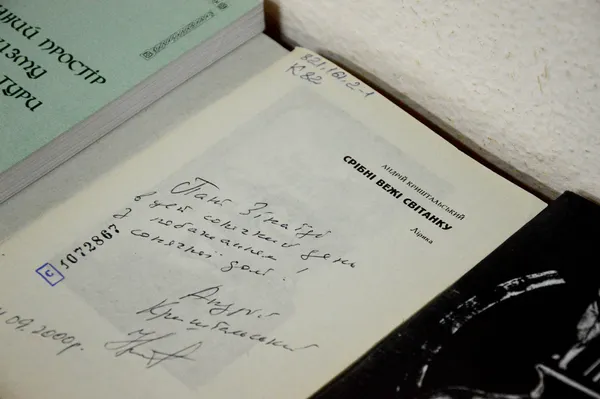 ний простір
їзму
тури
821.161.2-1
К 82
АНДРІЙ КРИШТАЛЬСЬКИЙ
СРІБНІ ВЕЖІ СВІТАНКУ
Лірика
Пані Зінаїді
в цей сонячний день
з побажанням
сонячної долі!
Андрій
Криштальський
09.2000р.
є 1072867